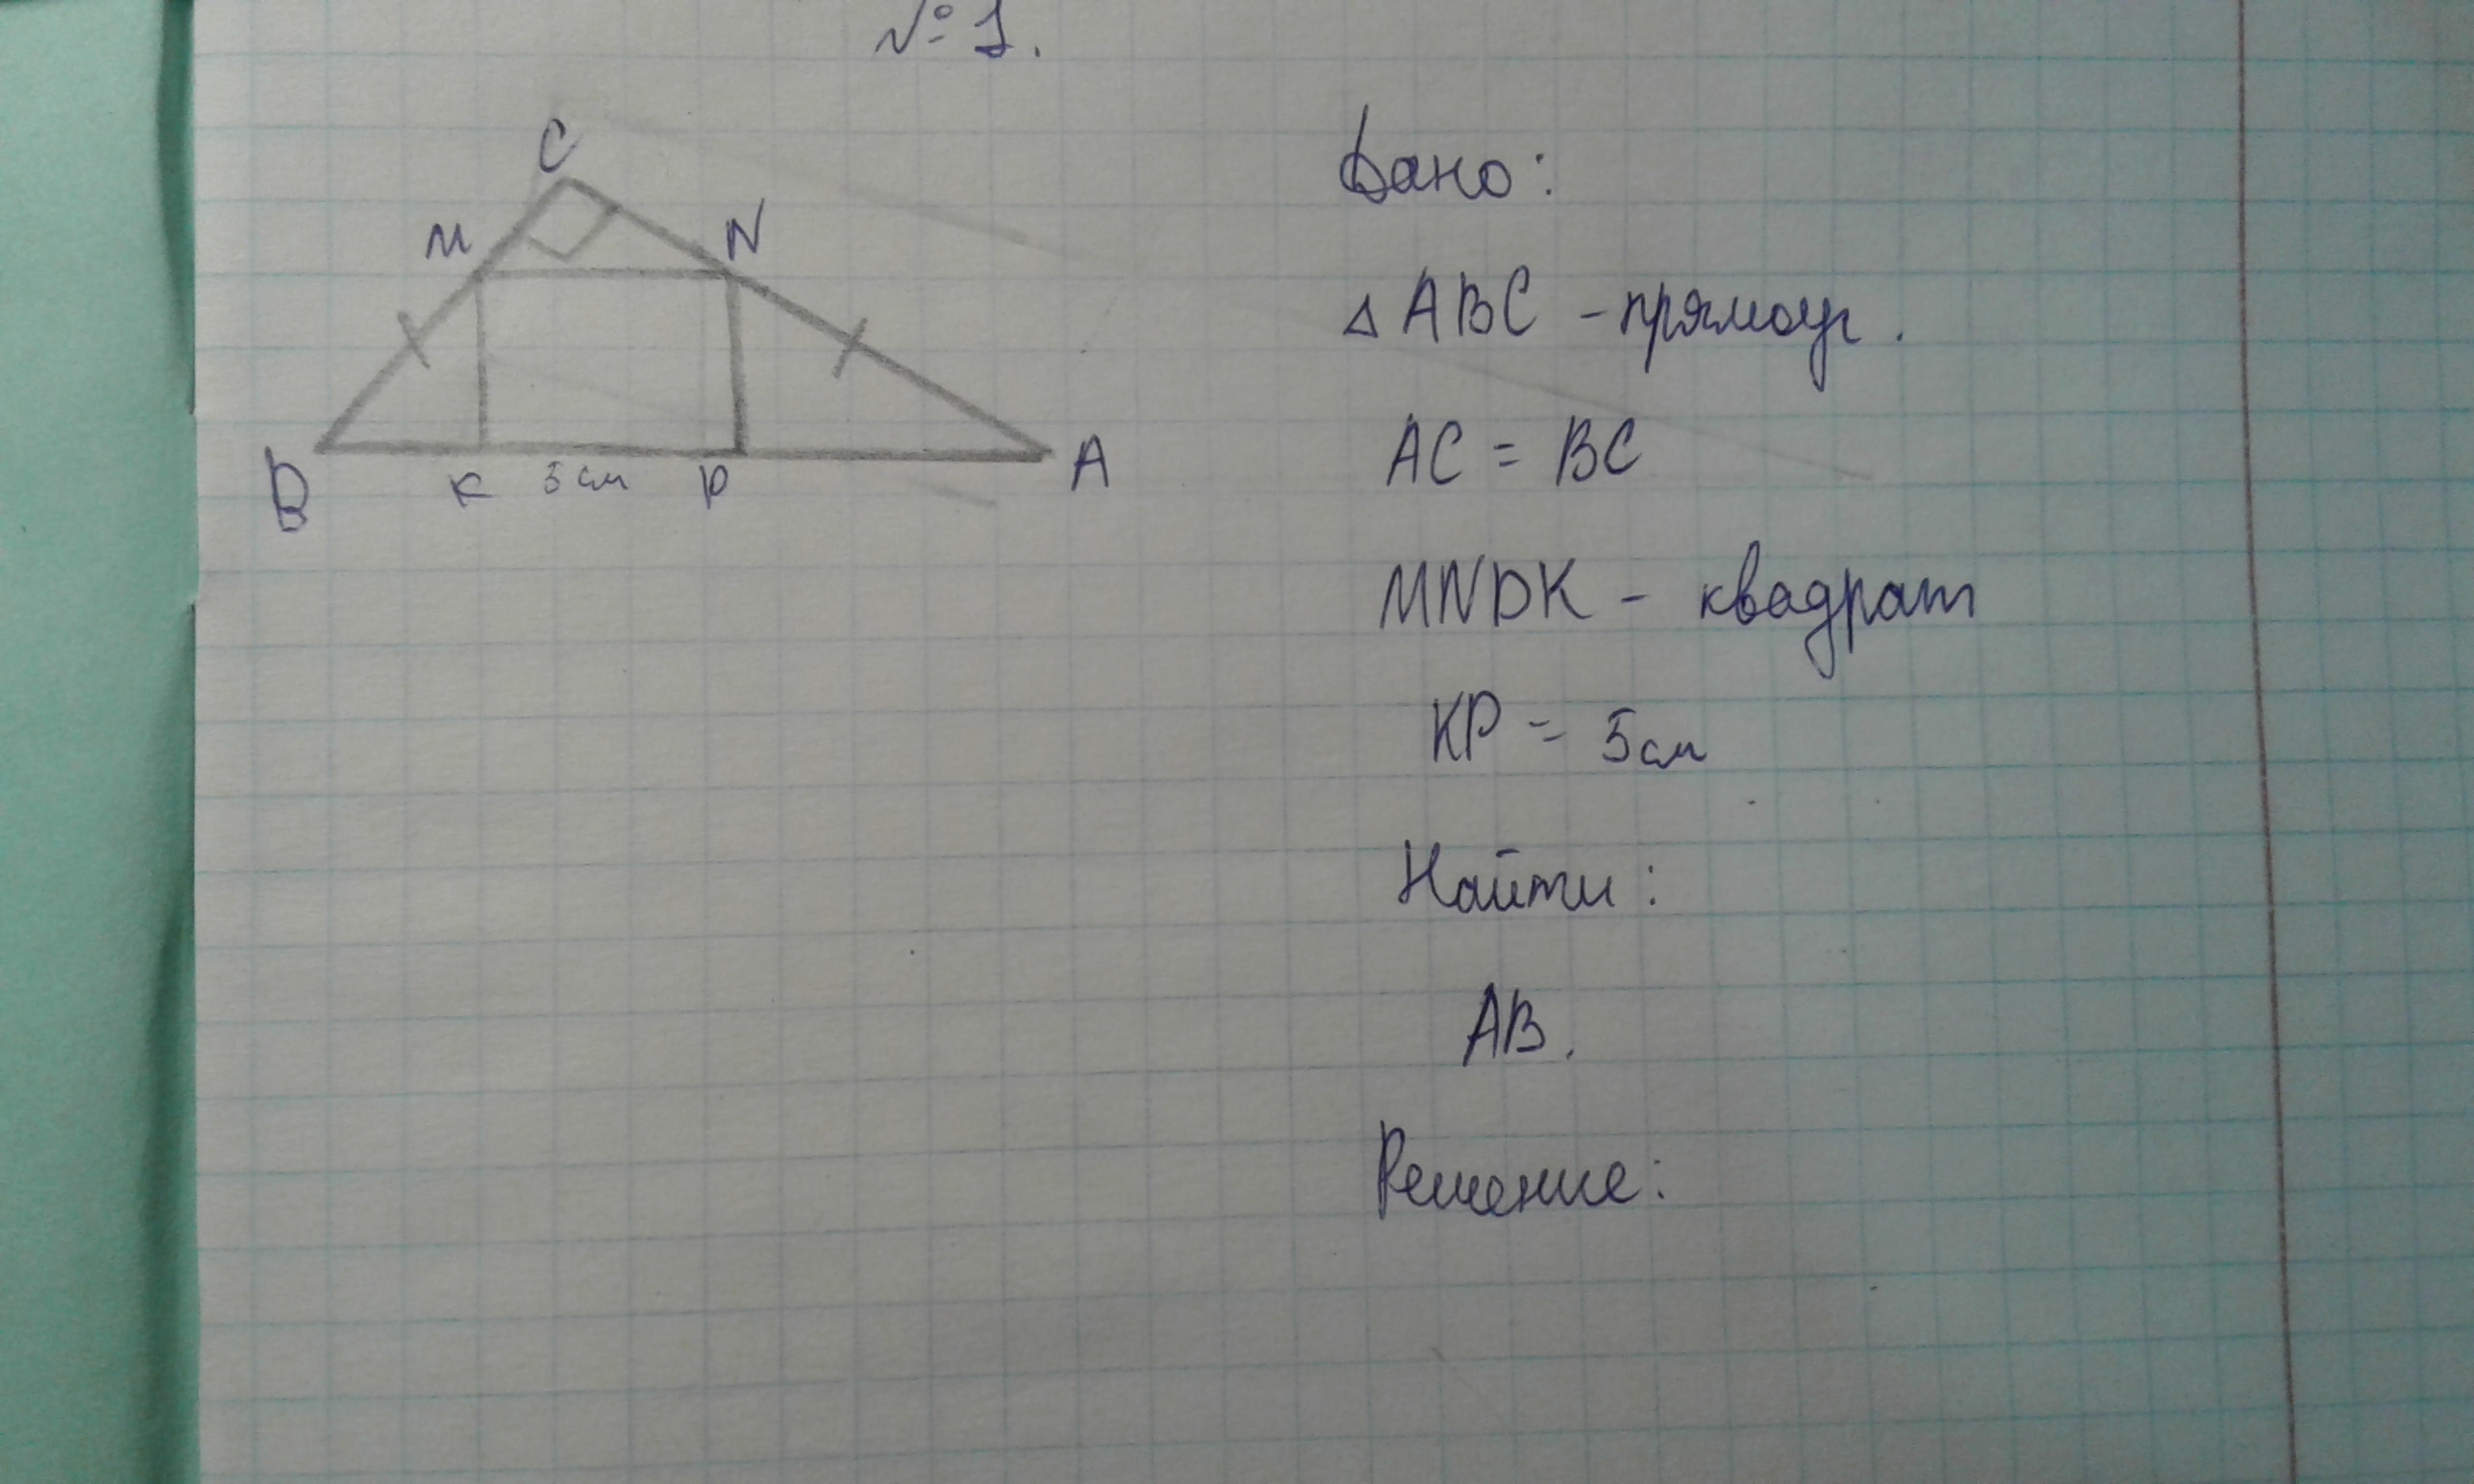 № 1.
C
M N
B K 5 см P A
Дано:
△ ABC - прямоуг.
AC = BC
MNPK - квадрат
KP = 5см
Найти:
AB.
Решение: